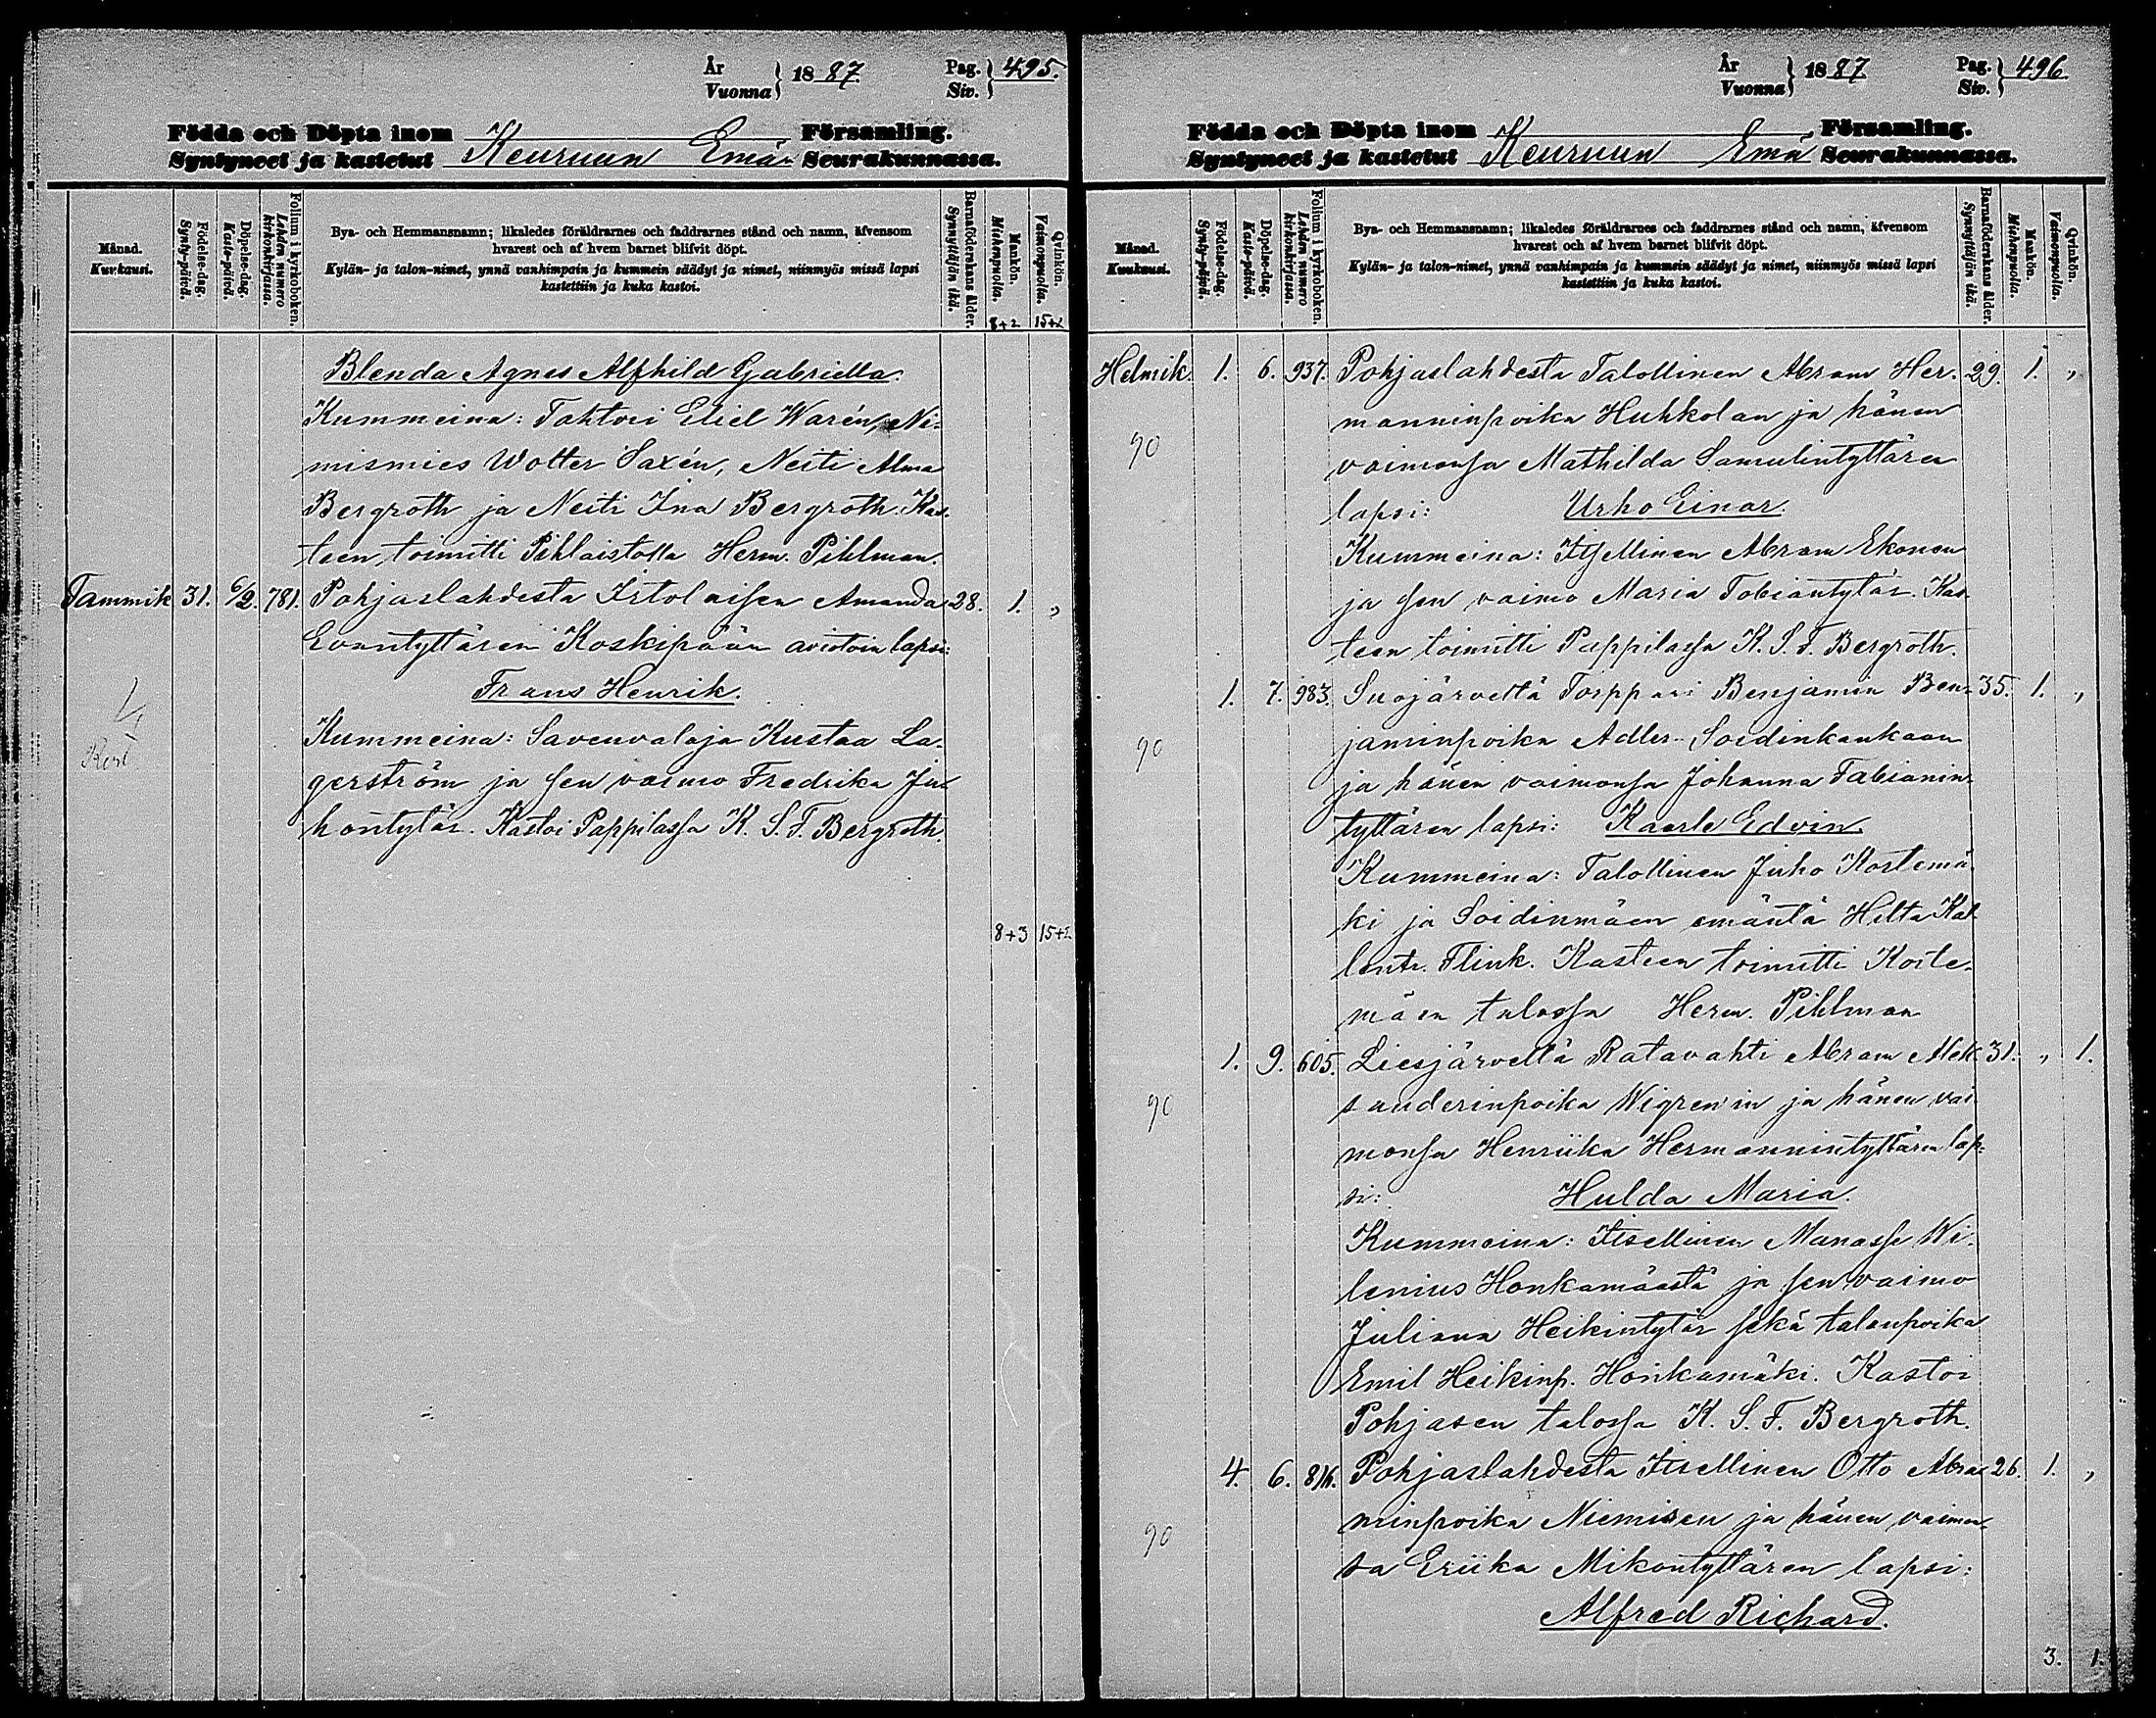 År Vuonna } 1887. Pag. Siv. } 495.
Födda och Döpta inom Församling.
Syntyneet ja kastetut Keuruun Emä- Seurakunnassa.
Månad. Kuukausi.
Födelse-dag. Synty-päivä.
Döpelse-dag. Kaste-päivä.
Folium i kyrkoboken. Lehden numero kirkonkirjassa.
Bya- och Hemmansnamn; likaledes föräldrarnes och faddrarnes stånd och namn, äfvensom
hvarest och af hvem barnet blifvit döpt.
Kylän- ja talon-nimet, ynnä vanhimpain ja kummein säädyt ja nimet, niinmyös missä lapsi
kastettiin ja kuka kastoi.
Barnaföderskans ålder. Synnyttäjän ikä.
Mankön. Miehenpuolia.
Qvinkön. Vaimonpuolia.
8+2 15+2
Blenda Agnes Alfhild Gabriella.
Kummeina: Tohtori Eliel Warén, Ni-
mismies Wolter Saxén, Neiti Alma
Bergroth ja Neiti Ina Bergroth. Kas-
teen toimitti Pihlaistolla Herm. Pihlman.
Tammik 31. 6/2. 781. Pohjaslahdesta Irtolaisen Amanda 28. 1. "
Evantyttären Koskipään aviotoin lapsi:
Frans Henrik.
Kummeina: Savenvalaja Kustaa La-
gerström ja sen vaimo Fredrika Ju-
hontytär. Kastoi Pappilassa K. S. F. Bergroth.
8+3 15+2
År Vuonna } 1887 Pag. Siv. } 496
Födda och Döpta inom Församling.
Syntyneet ja kastetut Keuruun Emä Seurakunnassa.
Månad. Kuukausi.
Födelse-dag. Synty-päivä.
Döpelse-dag. Kaste-päivä.
Folium i kyrkoboken. Lehden numero kirkonkirjassa.
Bya- och Hemmansnamn; likaledes föräldrarnes och faddrarnes stånd och namn, äfvensom
hvarest och af hvem barnet blifvit döpt.
Kylän- ja talon-nimet, ynnä vanhimpain ja kummein säädyt ja nimet, niinmyös missä lapsi
kastettiin ja kuka kastoi.
Barnaföderskans ålder. Synnyttäjän ikä.
Mankön. Miehenpuolia.
Qvinkön. Vaimonpuolia.
Helmik. 1. 6. 937. Pohjaslahdesta Talollinen Abram Her- 29. 1. "
manninpoika Huhkolan ja hänen
90 vaimonsa Mathilda Samulintyttären
lapsi: Urho Einar.
Kummeina: Itsellinen Abram Ekonen
ja sen vaimo Maria Tobiantytär. Kas-
teen toimitti Pappilassa K. S. F. Bergroth.
1. 7. 983. Suojärveltä Torppari Benjamin Ben- 35. 1. "
90 jaminpoika Adler- Soidinkankaan
ja hänen vaimonsa Johanna Fabianin-
tyttären lapsi: Kaarle Edvin.
Kummeina: Talollinen Juho Kostemä-
ki ja Soidinmäen emäntä Hilta Kal-
lentr. Flink. Kasteen toimitti Koste-
mäen talossa Herm. Pihlman
1. 9. 605. Liesjärveltä Ratavahti Abram Alek- 31. " 1.
90 sanderinpoika Wigren'in ja hänen vai-
monsa Henriika Hermannintyttären lap-
si: Hulda Maria.
Kummeina: Itsellinen Manasse Wi-
lenius Honkamäestä ja sen vaimo
Juliana Heikintytär sekä talonpoika
Emil Heikinp. Honkamäki. Kastoi
Pohjasen talossa K. S. F. Bergroth.
4. 6. 816. Pohjaslahdesta Itsellinen Otto Abra- 26. 1. "
90 minpoika Niemisen ja hänen vaimon-
sa Eriika Mikontyttären lapsi:
Alfred Richard.
3. 1.